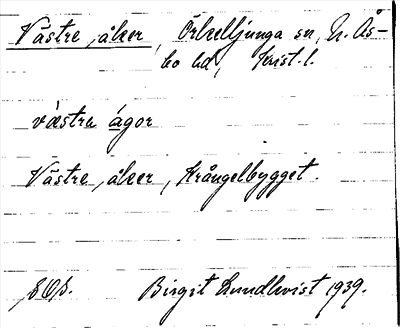 Västre åker, Örkelljunga sn, N. Ås-
bo hd, Krist. l.
västra ágor
Västre åker, Krångelbygget.
Birgit Lundkvist 1939.